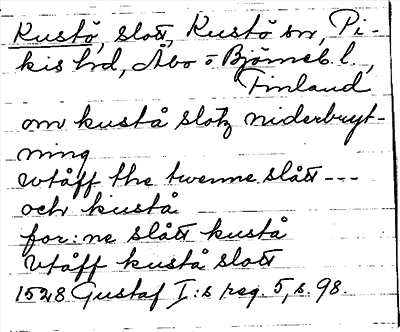 Kustö, slott, Kustö sn, Pi-
kis hd, Åbo o Björneb. l.,
Finland
om kustå slotz niderbryt-
ning
wtåff the twenne slått ---
och kustå
for:ne slått kustå
Vtåff kustå slott
1528 Gustaf I:s reg. 5, s. 98.